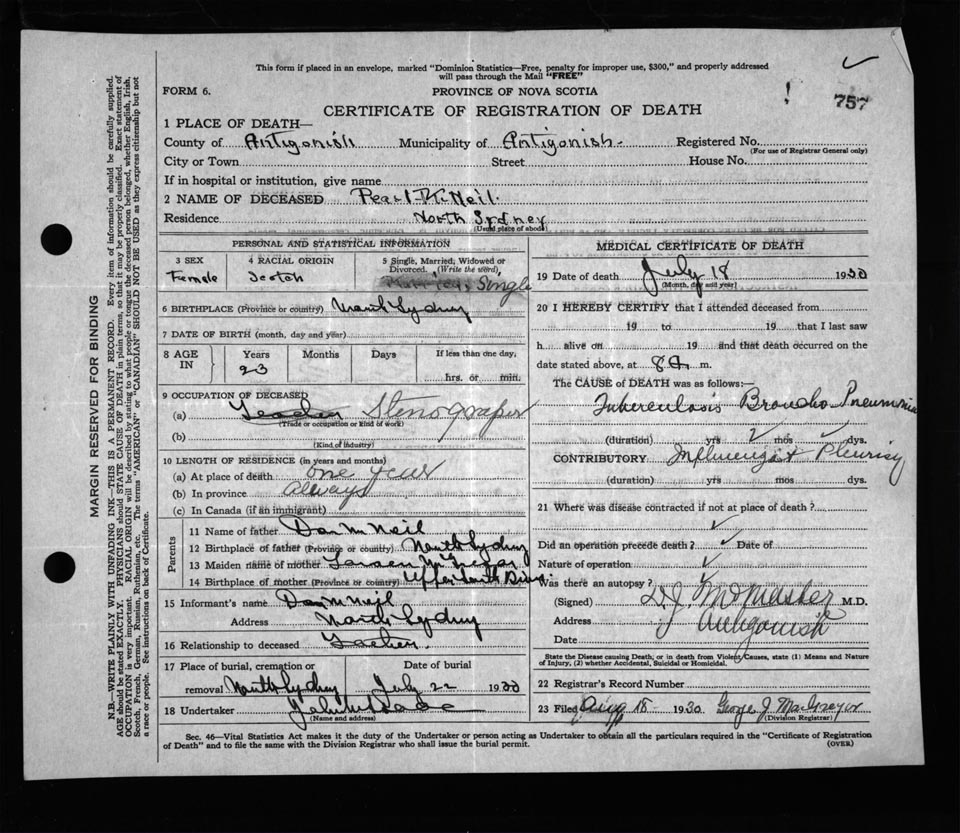 This form if placed in an envelope, marked "Dominion Statistics—Free, penalty for improper use, $300," and properly addressed
will pass through the Mail "FREE"
FORM 6.
PROVINCE OF NOVA SCOTIA
! 757
CERTIFICATE OF REGISTRATION OF DEATH
1 PLACE OF DEATH—
County of Antigonish Municipality of Antigonish Registered No.
(For use of Registrar General only)
City or Town Street House No.
If in hospital or institution, give name
2 NAME OF DECEASED Pearl McNeil
Residence North Sydney
(Usual place of abode)
PERSONAL AND STATISTICAL INFORMATION
3 SEX
Female
4 RACIAL ORIGIN
Scotch
5 Single, Married, Widowed or
Divorced. (Write the word)
Single
6 BIRTHPLACE (Province or country) North Sydney
7 DATE OF BIRTH (month, day and year)
8 AGE IN
Years Months Days If less than one day,
23
hrs. or min.
9 OCCUPATION OF DECEASED
(a) Stenographer
(Trade or occupation or kind of work)
(b)
(Kind of industry)
10 LENGTH OF RESIDENCE (in years and months)
(a) At place of death one year
(b) In province always
(c) In Canada (if an immigrant)
Parents
11 Name of father Dan McNeil
12 Birthplace of father (Province or country) North Sydney
13 Maiden name of mother
14 Birthplace of mother (Province or country) Upper South River
15 Informant's name Dan McNeil
Address North Sydney
16 Relationship to deceased
17 Place of burial, cremation or Date of burial
removal North Sydney July 22 1930
18 Undertaker
(Name and address)
MEDICAL CERTIFICATE OF DEATH
19 Date of death July 18 1930
(Month, day and year)
20 I HEREBY CERTIFY that I attended deceased from
19 to 19 that I last saw
h alive on 19 and that death occurred on the
date stated above, at 8 a. m.
The CAUSE of DEATH was as follows:—
Tuberculosis Broncho Pneumonia
(duration) yrs 2 mos dys.
CONTRIBUTORY Influenza & Pleurisy
(duration) yrs mos dys.
21 Where was disease contracted if not at place of death?
Did an operation precede death? Date of
Nature of operation
Was there an autopsy?
(Signed) M.D.
Address Antigonish
Date
State the Disease causing Death, or in death from Violent Causes, state (1) Means and Nature
of Injury, (2) whether Accidental, Suicidal or Homicidal.
22 Registrar's Record Number
23 Filed Aug 18 1930 George J. MacGregor
(Division Registrar)
Sec. 46—Vital Statistics Act makes it the duty of the Undertaker or person acting as Undertaker to obtain all the particulars required in the "Certificate of Registration
of Death" and to file the same with the Division Registrar who shall issue the burial permit.
(OVER)
MARGIN RESERVED FOR BINDING
N.B.—WRITE PLAINLY WITH UNFADING INK—THIS IS A PERMANENT RECORD. Every item of information should be carefully supplied.
AGE should be stated EXACTLY. PHYSICIANS should STATE CAUSE OF DEATH in plain terms, so that it may be properly classified. Exact statement of
OCCUPATION is very important. RACIAL ORIGIN will be described by stating to what people or tongue the deceased person belonged, whether English, Irish,
Scotch, French, German, Russian, Ruthenian, etc. The terms "AMERICAN" or "CANADIAN" SHOULD NOT BE USED as they express citizenship but not
a race or people. See instructions on back of Certificate.